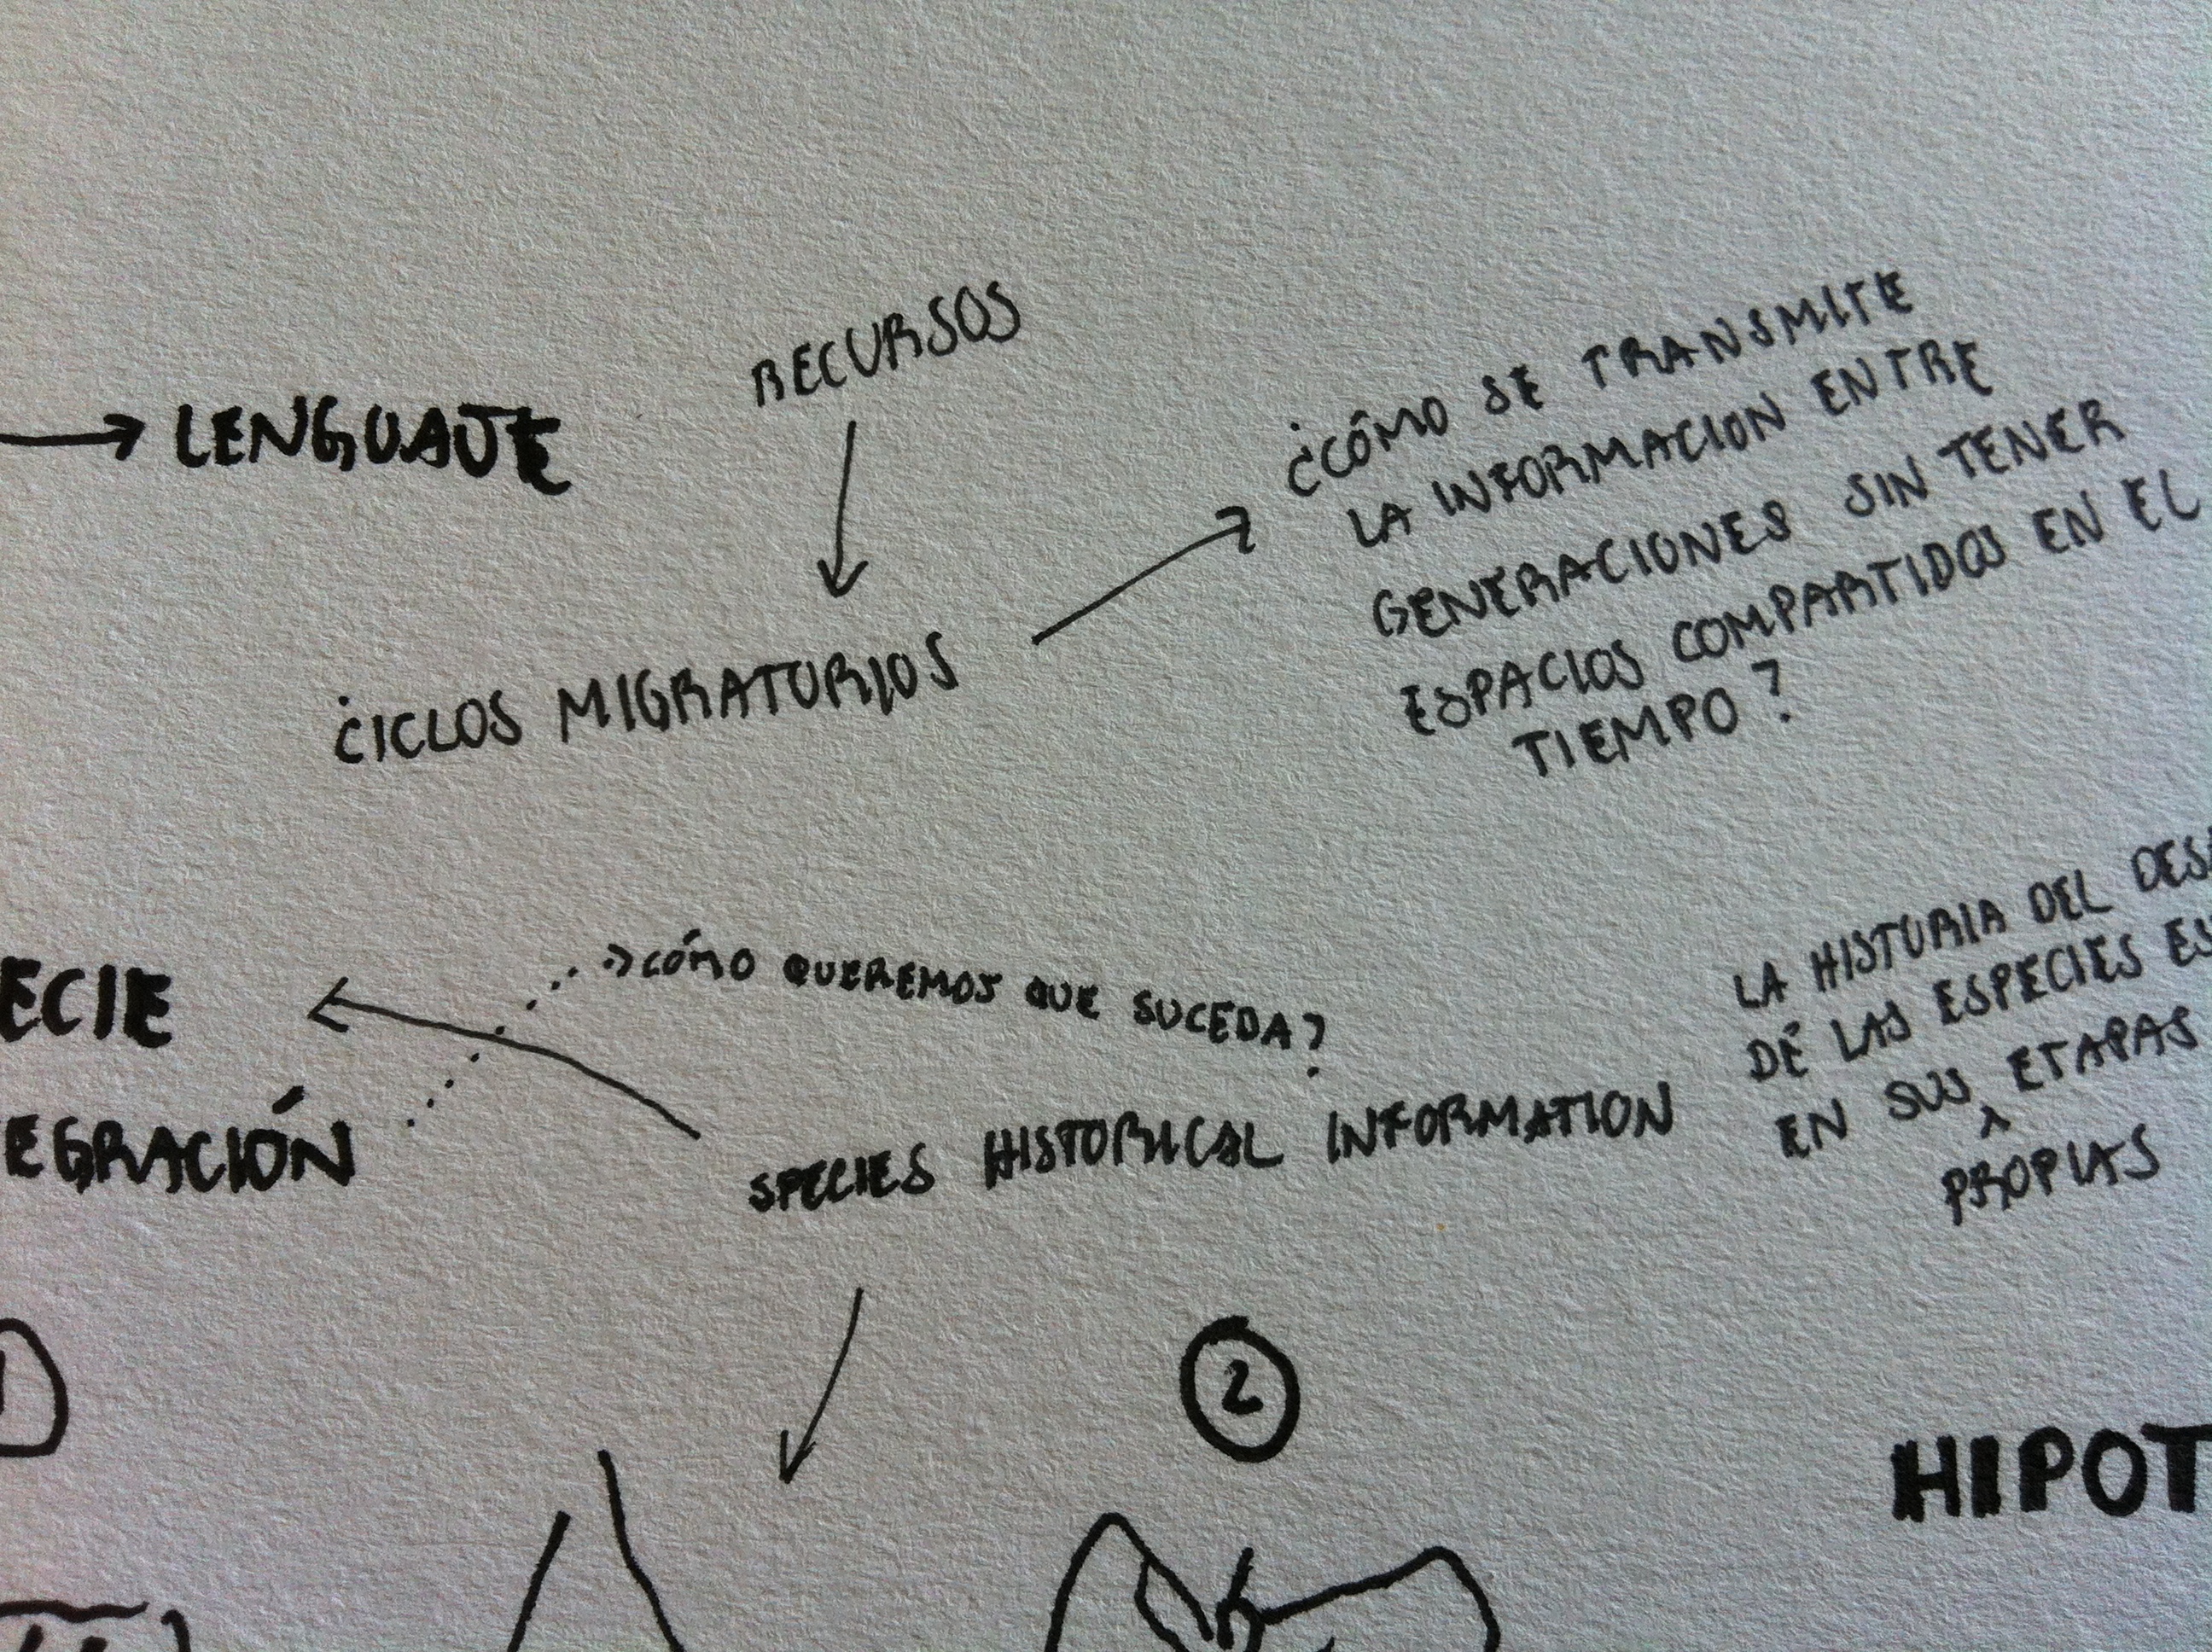 RECURSOS
→ LENGUAJE
¿CÓMO SE TRANSMITE
LA INFORMACION ENTRE
GENERACIONES SIN TENER
ESPACIOS COMPARTIDOS EN EL
TIEMPO?
¿CICLOS MIGRATORIOS
LA HISTORIA DEL DESA
DE LAS ESPECIES ES
EN SUS ETAPAS
PROPIAS
¿CÓMO QUEREMOS QUE SUCEDA?
ECIE
EGRACIÓN
SPECIES HISTORICAL INFORMATION
1
2
HIPOT